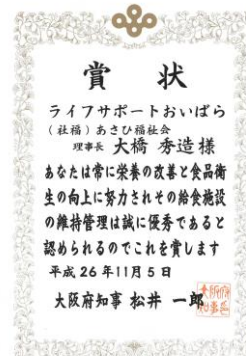 賞状
ライフサポートおいばら
(社福)あさひ福祉会
理事長 大橋 秀造様
あなたは常に栄養の改善と食品衛
生の向上に努力されその給食施設
の維持管理は誠に優秀であると
認められるのでこれを賞します
平成26年11月5日
大阪府知事 松井 一郎